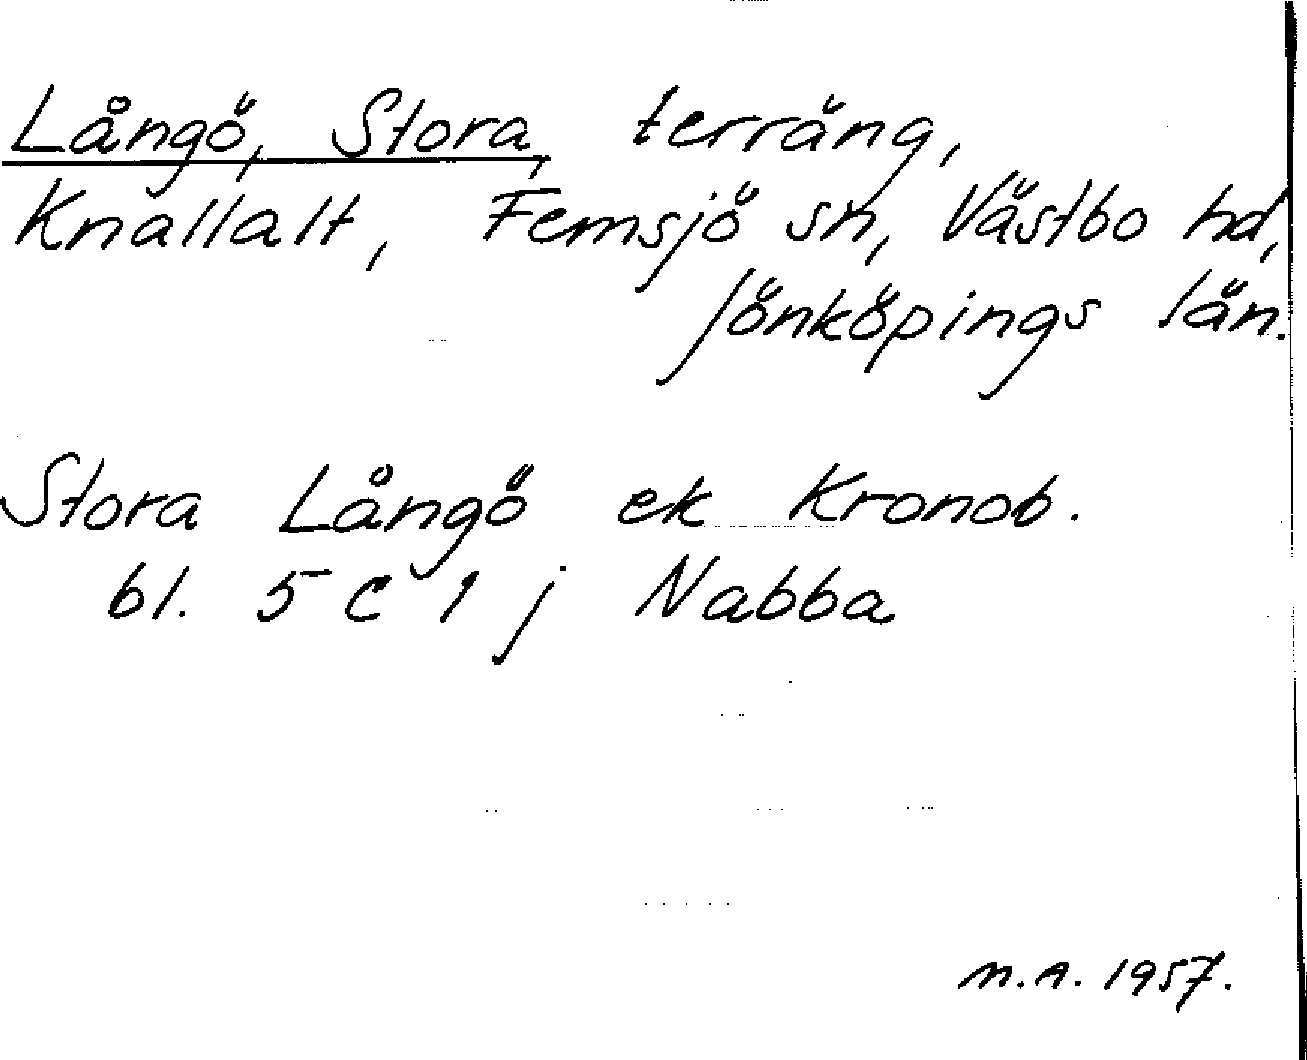 Långö, Stora, terräng,
Knallalt, Femsjö sn, Västbo hd,
Jönköpings län.
Stora Långö ek Kronob.
bl. 5 C 1 j Nabba
N.A. 1957.